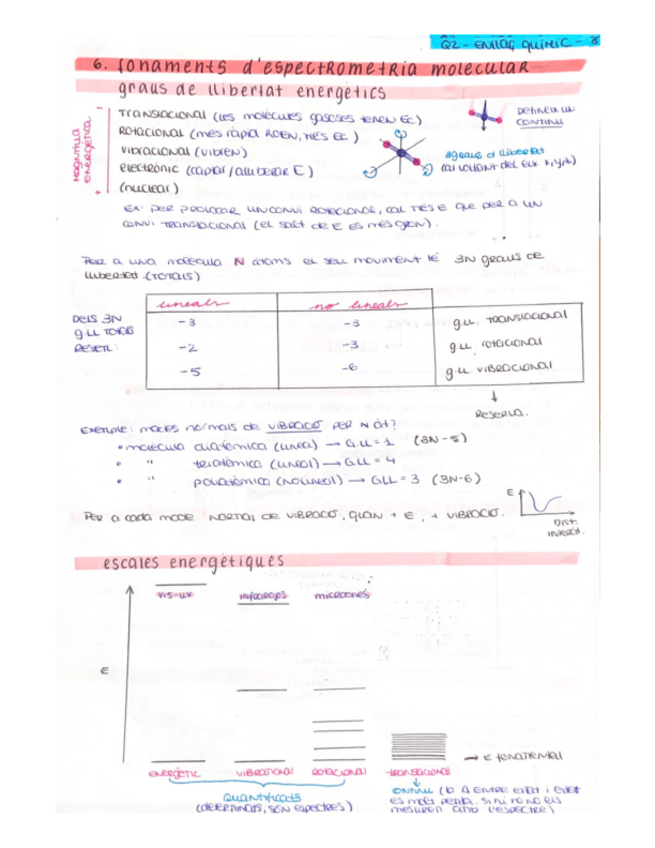 Q2 - ENLLAÇ QUÍMIC - 8
6. fonaments d'espectrometria molecular
graus de llibertat energètics
MAGNITUD ENERGÈTICA
- +
TRANSLACIONAL (les molècules gasoses tenen Ec)
ROTACIONAL (més ràpid ROEN, més Ec)
VIBRACIONAL (VIBREN)
electrònic (captar/alliberar E)
(nuclear)
DEFINEIX UN CONTINU
3 graus d llibertat
(al voltant del eix x,y,z)
EX: PER PROVOCAR UN CANVI ROTACIONAL, CAL MÉS E QUE PER A UN
CANVI TRANSLACIONAL (el salt de E ES MÉS GRAN).
PER A una molècula N àtoms el seu moviment té 3N graus de
llibertat. (TOTALS)
DELS 3N
g.ll TOTALS
RESTEM:
lineals no lineals
-3 -3 g.ll. TRANSLACIONAL
-2 -3 g.ll. rotacional
-5 -6 g.ll VIBRACIONAL
RESERVA.
EXEMPLE: modes normals de VIBRACIÓ PER N àt?
• molècula diatòmica (lineal) → G.LL = 1 (3N-5)
• " triatòmica (lineal) → G.LL = 4
• " poliatòmica (no lineal) → GLL = 3 (3N-6)
PER a cada mode NORMAL DE VIBRACIÓ, QUAN + E, + VIBRACIÓ.
E
DIST.
escales energètiques
E
VIS-UV infrarojos microones
energètic vibracional rotacional translacional
→ E fonamental
QUANTIFICATS
(determinats, són espectres)
CONTINU (la Δ ENTRE estat i estat
és molt petita. si ni
mesuren amb l'espectre)